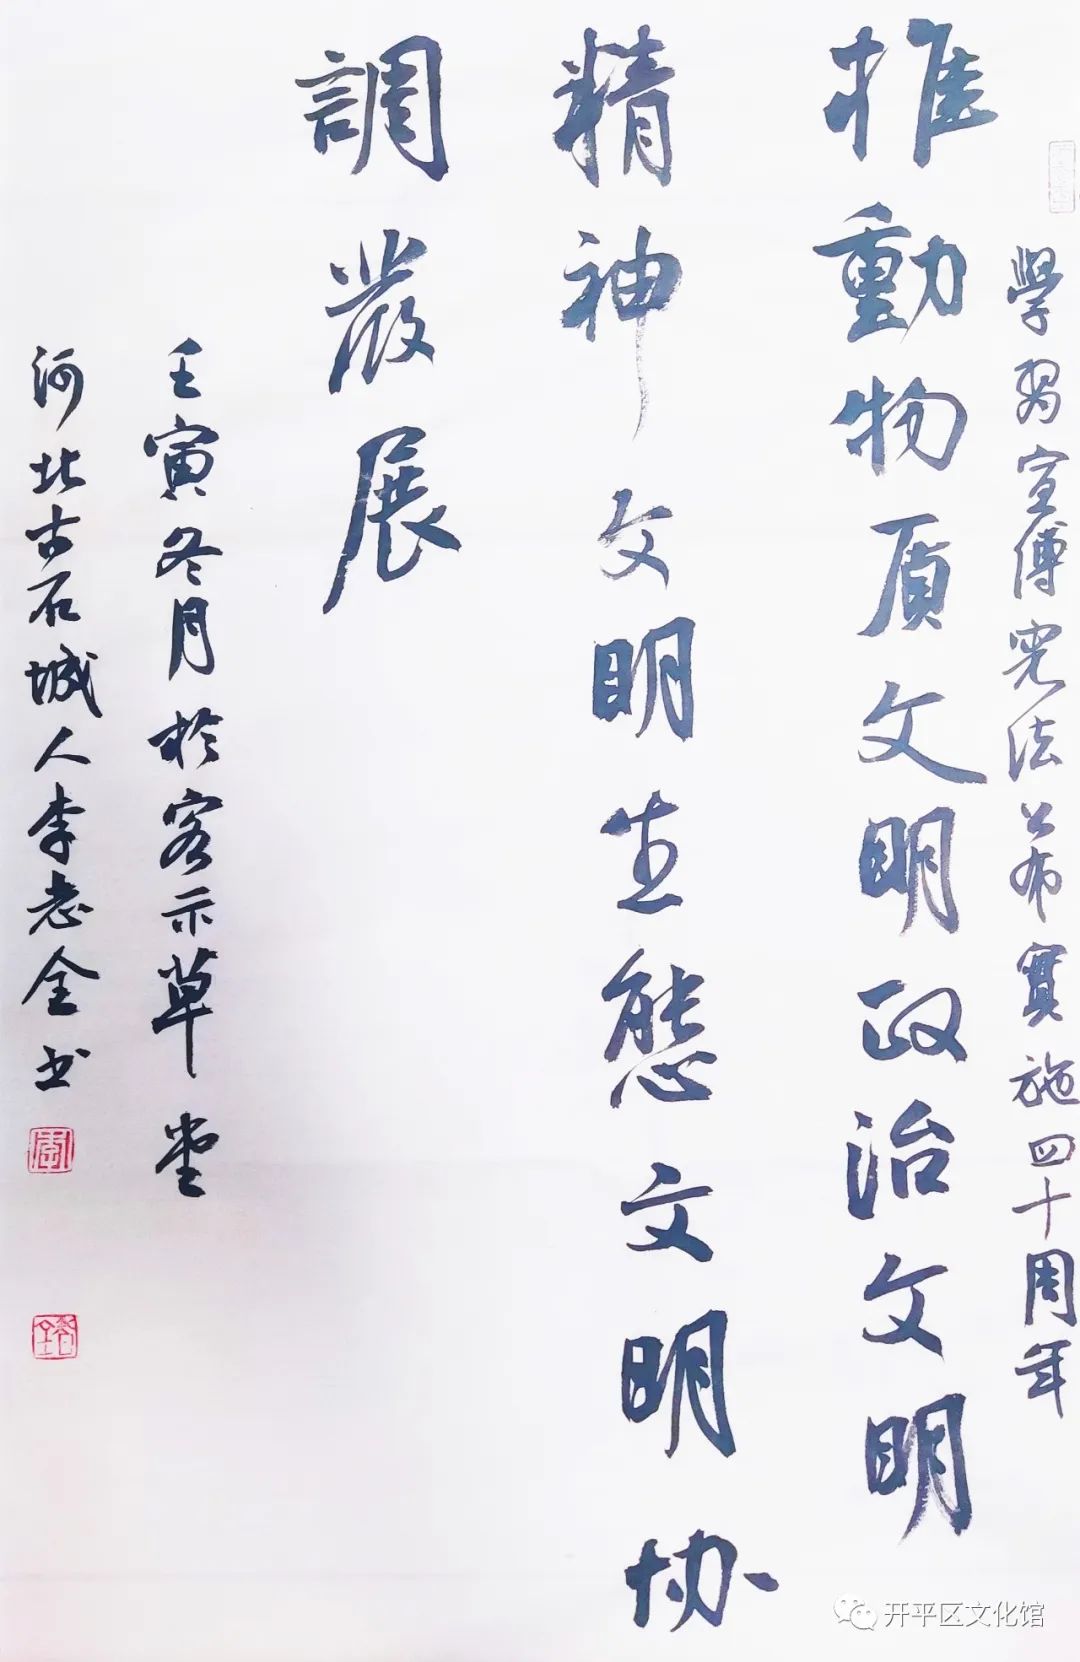 學習宣傳憲法公布實施四十周年
推動物质文明政治文明
精神文明生態文明协
調發展
壬寅冬月於容示草堂
河北古石城人李志全书
开平区文化馆